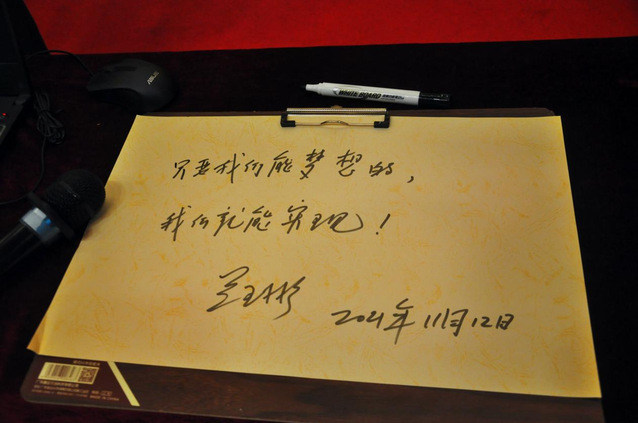 只要我们能梦想的,
我们就能实现!
2021年11月12日
WHITE BOARD
ASUS